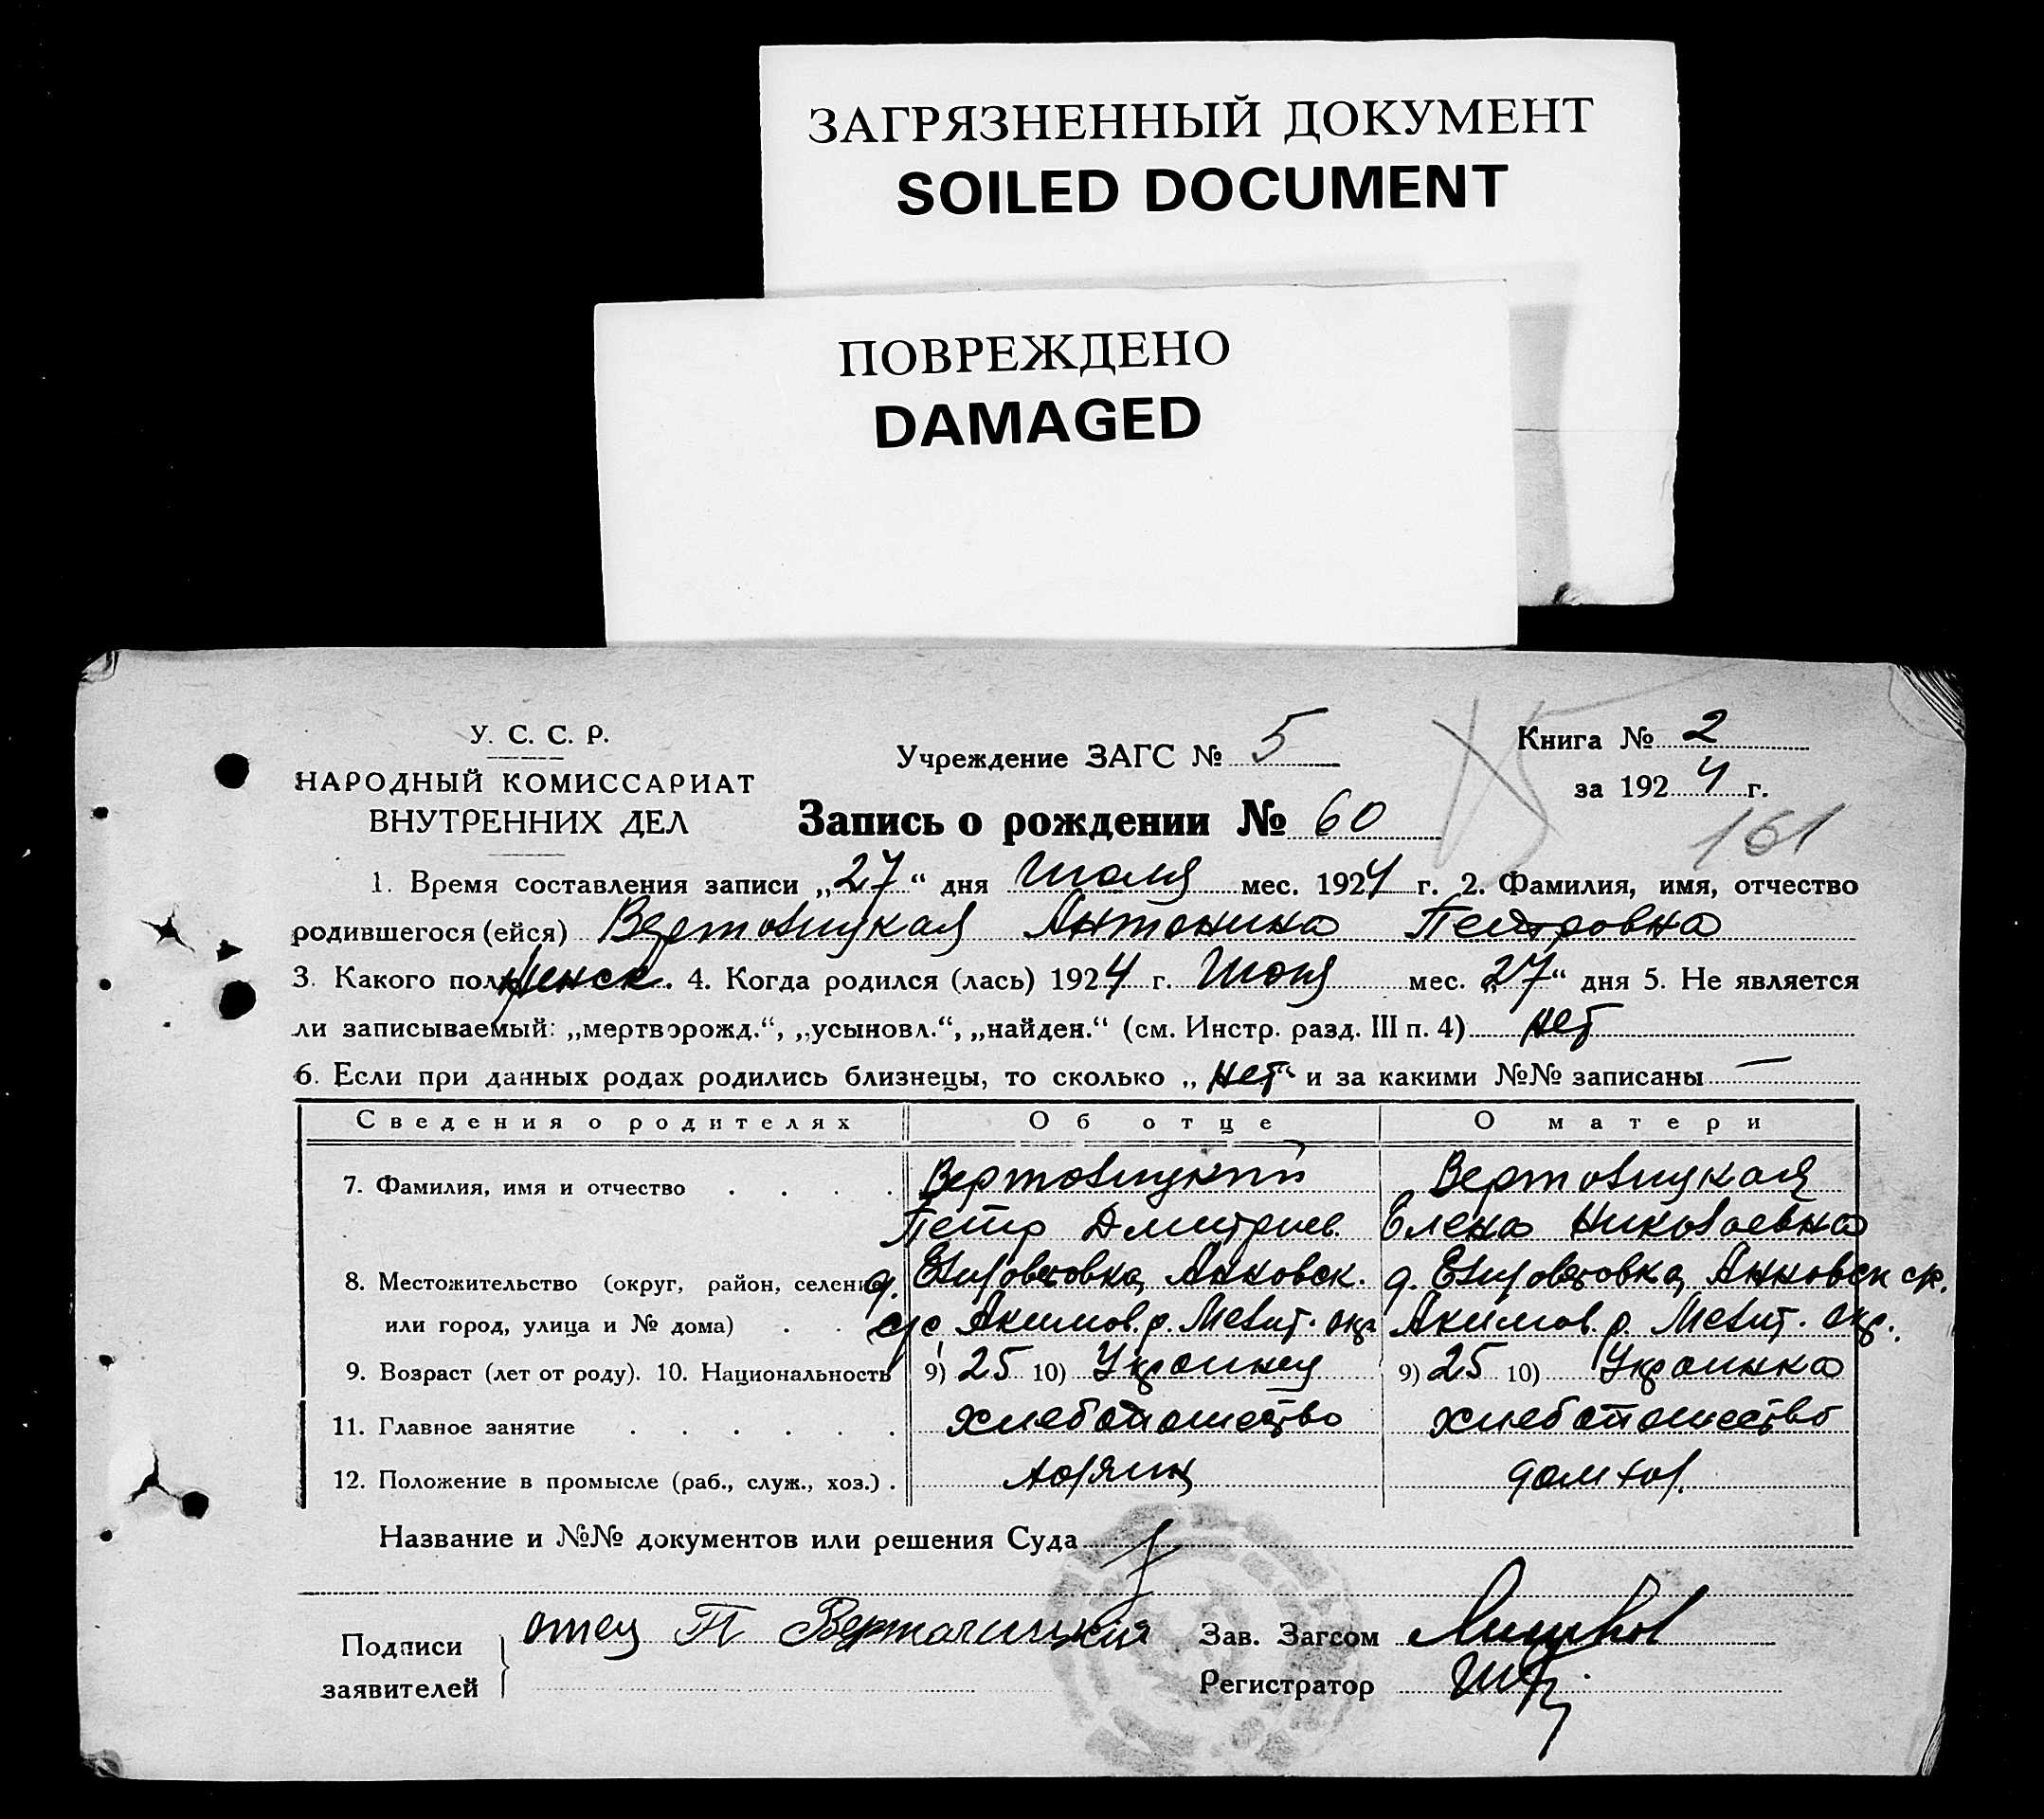 ЗАГРЯЗНЕННЫЙ ДОКУМЕНТ
SOILED DOCUMENT
ПОВРЕЖДЕНО
DAMAGED
У. С. С. Р.
НАРОДНЫЙ КОМИССАРИАТ
ВНУТРЕННИХ ДЕЛ
Учреждение ЗАГС № 5
Книга № 2
за 1924 г.
Запись о рождении № 60
161
1. Время составления записи „27“ дня Июля мес. 1924 г. 2. Фамилия, имя, отчество
родившегося (ейся) Антонина Петровна
3. Какого пола женск. 4. Когда родился (лась) 1924 г. Июня мес. „27“ дня 5. Не является
ли записываемый: „мертворожд.“, „усыновл.“, „найден.“ (см. Инстр. разд. III п. 4) нет
6. Если при данных родах родились близнецы, то сколько „нет“ и за какими №№ записаны —
Сведения о родителях Об отце О матери
7. Фамилия, имя и отчество . . . .
Петр Дмитриев. Елена Николаевна
8. Местожительство (округ, район, селение
или город, улица и № дома) . . с/с Акимов. р. Мелит. окр. Акимов. р. Мелит. окр.
9. Возраст (лет от роду). 10. Национальность 9) 25 10) Украинец 9) 25 10) Украинка
11. Главное занятие . . . . . . хлебопашество хлебопашество
12. Положение в промысле (раб., служ., хоз.) . хозяин домхоз.
Название и №№ документов или решения Суда
Подписи
заявителей
отец П
Зав. Загсом
Регистратор